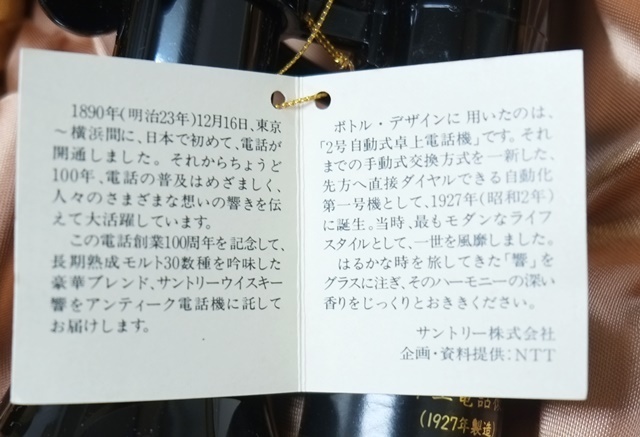 1890年(明治23年)12月16日、東京
〜横浜間に、日本で初めて、電話が
開通しました。それからちょうど
100年、電話の普及はめざましく、
人々のさまざまな想いの響きを伝
えて大活躍しています。
この電話創業100周年を記念して、
長期熟成モルト30数種を吟味した
豪華ブレンド、サントリーウイスキー
響をアンティーク電話機に託して
お届けします。
ボトル・デザインに用いたのは、
「2号自動式卓上電話機」です。それ
までの手動式交換方式を一新した、
先方へ直接ダイヤルできる自動化
第一号機として、1927年(昭和2年)
に誕生。当時、最もモダンなライフ
スタイルとして、一世を風靡しました。
はるかな時を旅してきた「響」を
グラスに注ぎ、そのハーモニーの深い
香りをじっくりとおききください。
サントリー株式会社
企画・資料提供:NTT
上電話
(1927年製造)